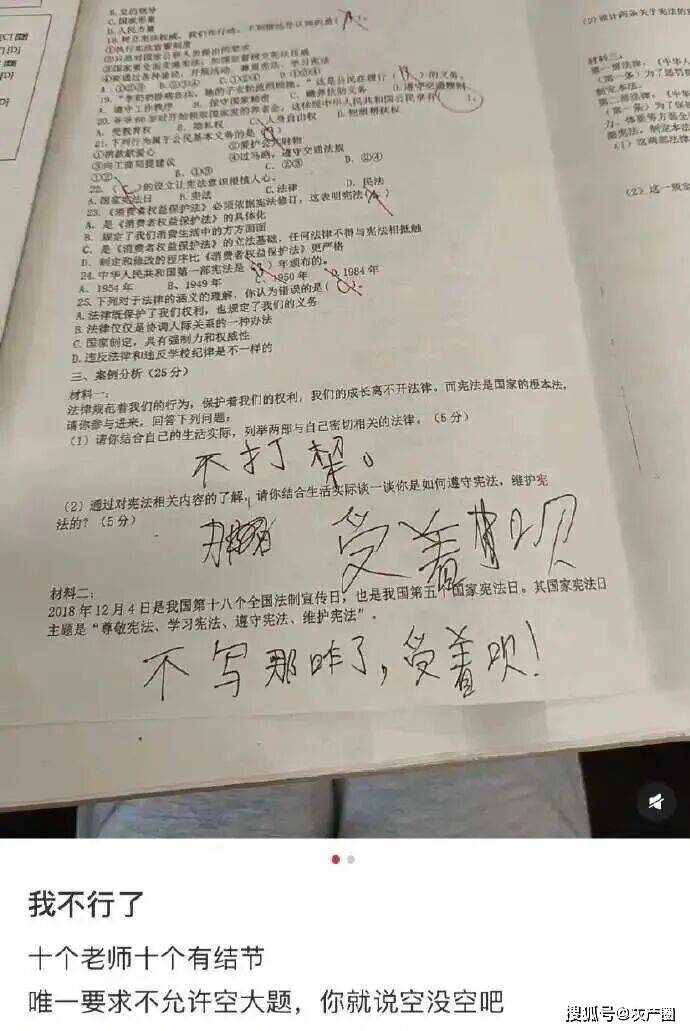 B. 党的领导
C. 国家形象
D. 人民力量
①执行宪法宣誓制度
A. ①②③ B. ②③④ C. ①②④ D. ①③④
A. 遵守工作秩序 B. 保守国家秘密 C. 赡养扶助义务 D. 遵守交通规则
A. 受教育权 B. 隐私权 C. 人身自由权 D. 物质帮助权
21. 下列行为属于公民基本义务的是( )
①捐款献爱心 ②爱护公共财物
③向工商局提建议 ④过马路,遵守交通法规
A. ①② B. ①③ C. ②③ D. ②④
22. ( )的设立让宪法意识根植人心。
A. 国家宪法日 B. 宪法 C. 法律 D. 民法
23. 《消费者权益保护法》必须依据宪法修订,这表明宪法( )
A. 是《消费者权益保护法》的具体化
B. 规定了我们消费生活中的方方面面
C. 是《消费者权益保护法》的立法基础,任何法律不得与宪法相抵触
D. 制定和修改的程序比《消费者权益保护法》更严格
24. 中华人民共和国第一部宪法是( )年颁布的。
A. 1954 年 B. 1949 年 C. 1950 年 D. 1984 年
25. 下列对于法律的涵义的理解,你认为错误的是( )
A. 法律既保护了我们权利,也规定了我们的义务
B. 法律仅仅是协调人际关系的一种办法
C. 国家制定,具有强制力和权威性
D. 违反法律和违反学校纪律是不一样的
三、案例分析(25 分)
材料一:
法律规范着我们的行为,保护着我们的权利,我们的成长离不开法律,而宪法是国家的根本法,
请你参与进来,回答下列问题:
(1) 请你结合自己的生活实际,列举两部与自己密切相关的法律。(5 分)
不打架。
(2) 通过对宪法相关内容的了解,请你结合生活实际谈一谈你是如何遵守宪法,维护宪
法的?(5 分)
受着呗
材料二:
2018 年 12 月 4 日是我国第十八个全国法制宣传日,也是我国第五个国家宪法日。其国家宪法日
主题是“尊敬宪法、学习宪法、遵守宪法、维护宪法”。
不写那咋了,受着呗!
材料三:
(1) 这两部法律
(2) 这一规定
我不行了
十个老师十个有结节
唯一要求不允许空大题,你就说空没空吧
搜狐号@灰产圈